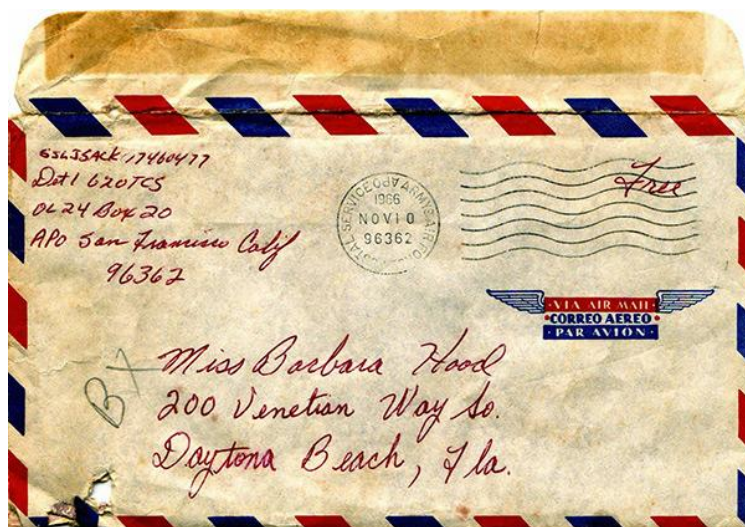 17460477
Det 1 620 TCS
OL 24 Box 20
APO San Francisco Calif
96362
POSTAL SERVICE APO ARMY & AIR FORCE
1966
NOV 10
96362
Free
VIA AIR MAIL
CORREO AEREO
PAR AVION
BX
Miss Barbara Hood
200 Venetian Way So.
Daytona Beach, Fla.